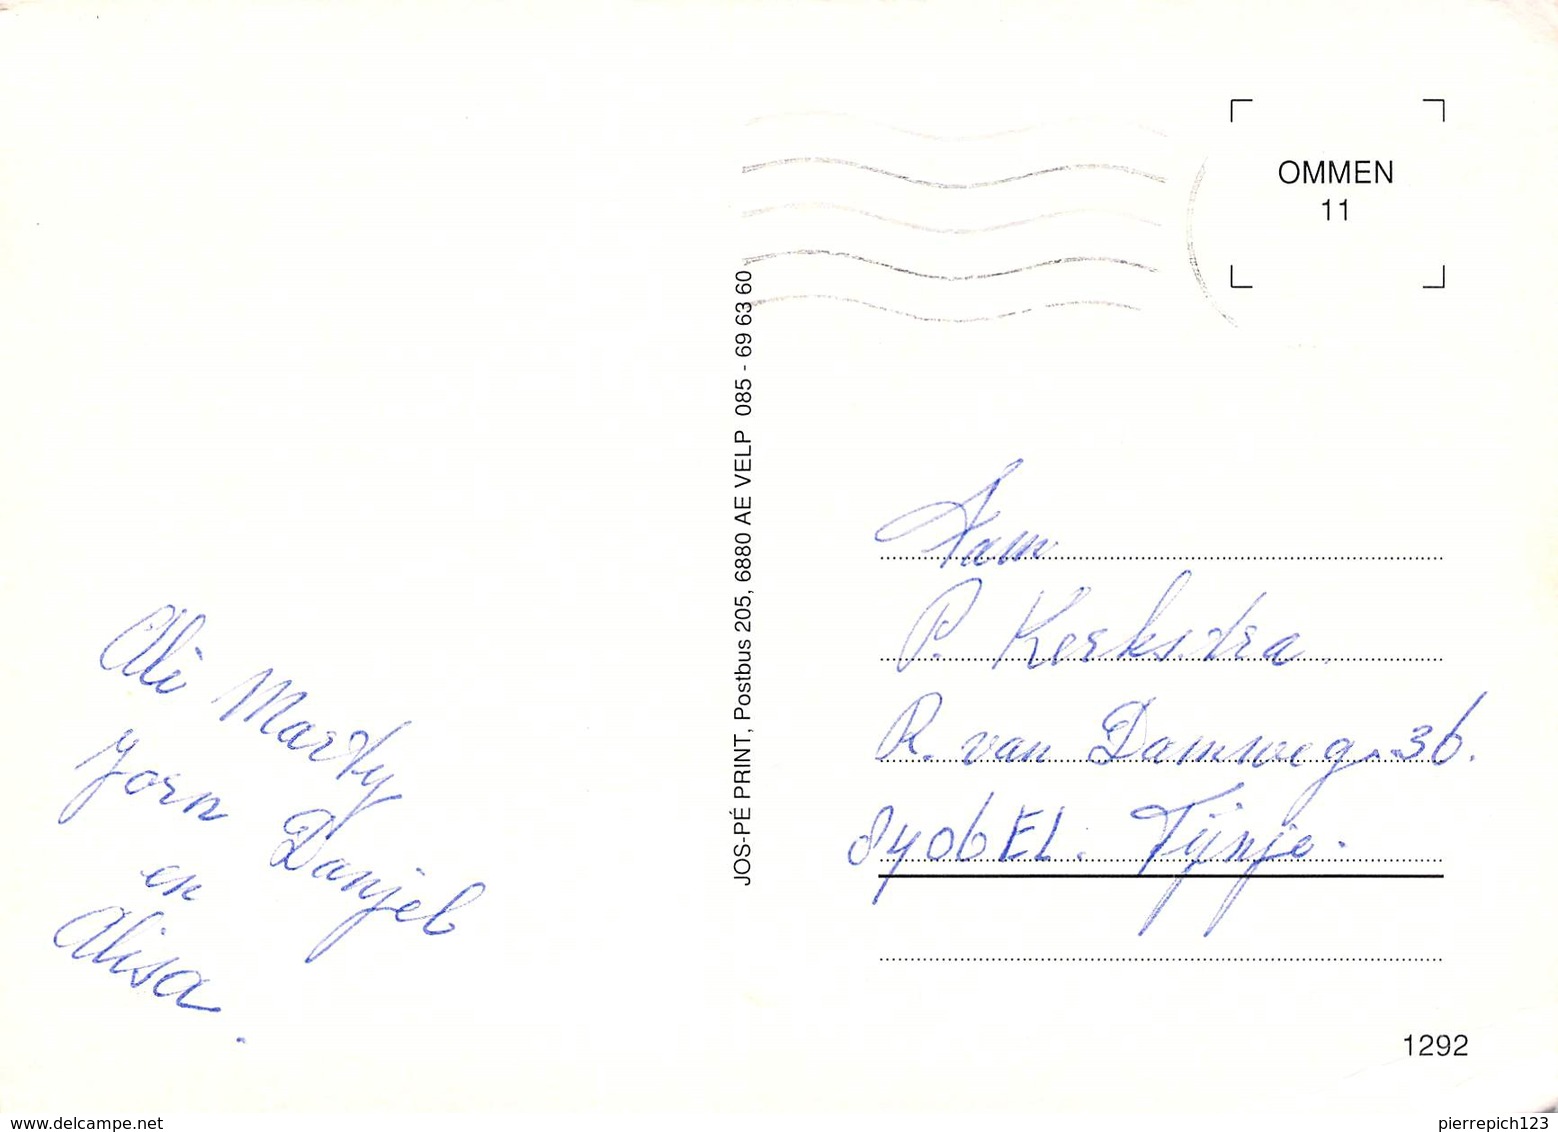 OMMEN
11
JOS-PÉ PRINT, Postbus 205, 6880 AE VELP 085 - 69 63 60
Ali Marty
Jorn Danjel
en
Alisa.
Fam
P. Kerkstra.
R. van Damweg. 36.
8406 EL. Tijnje.
1292
www.delcampe.net
pierrepich123